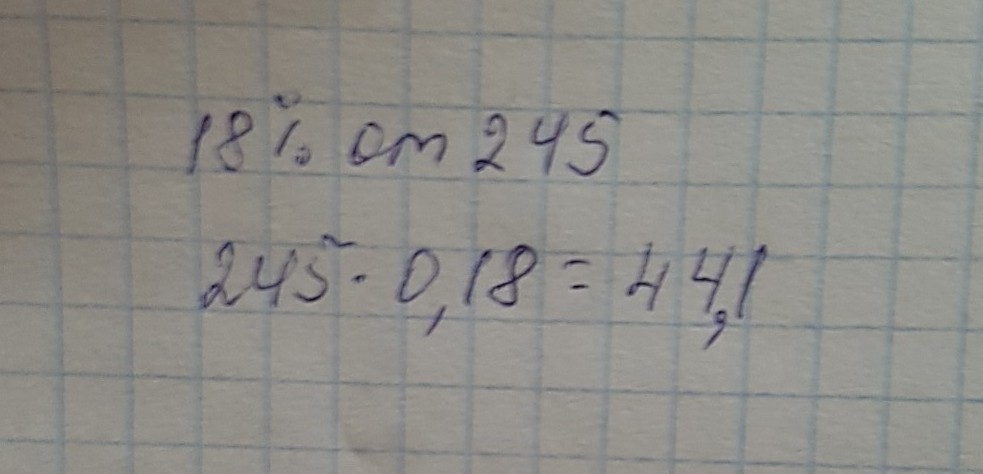 18% от 245
245 · 0,18 = 44,1